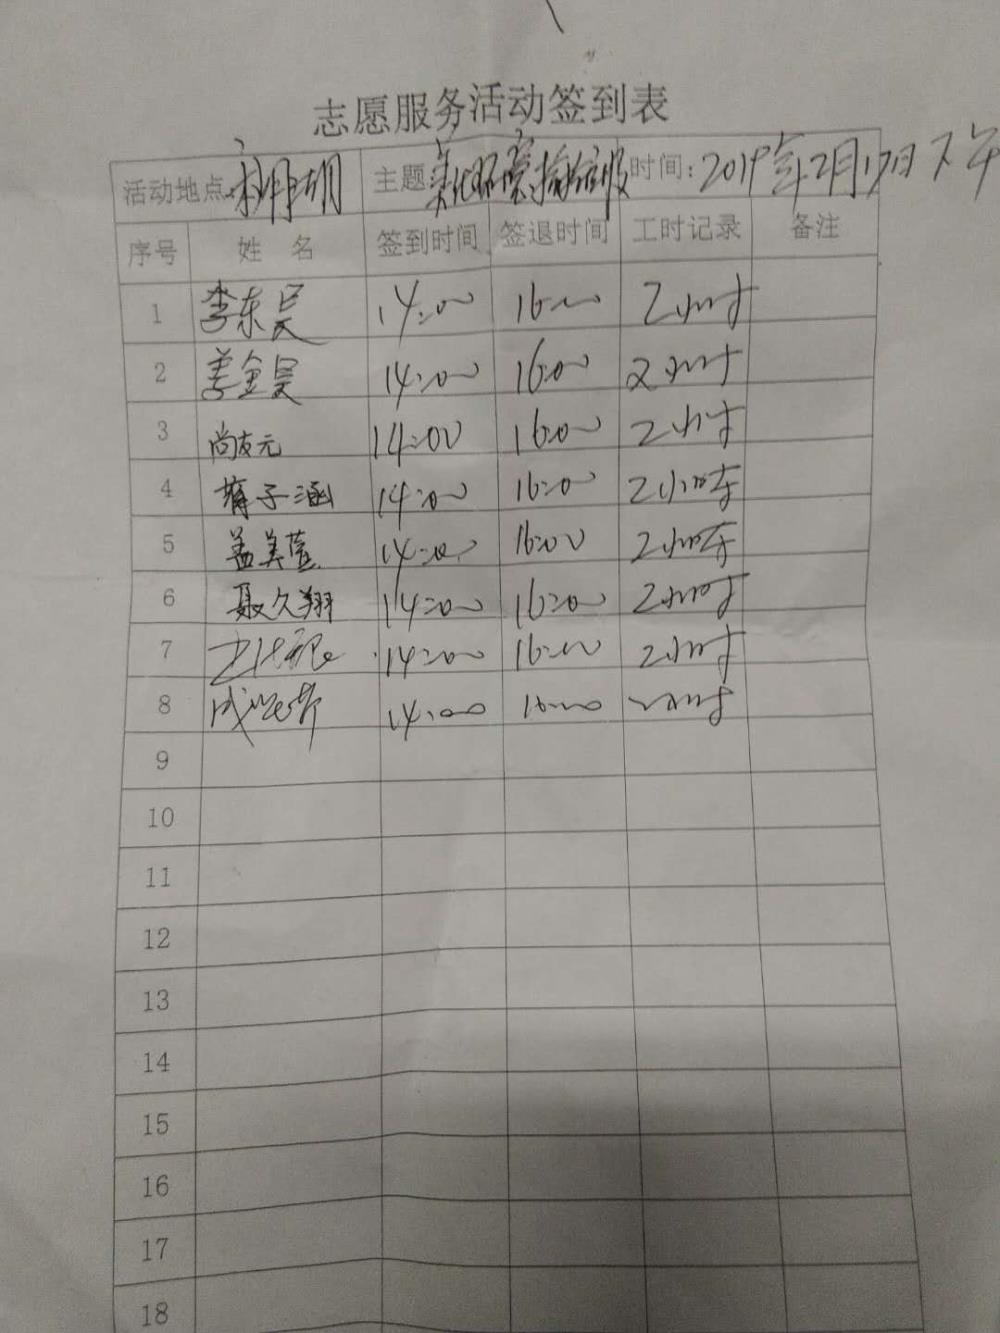 志愿服务活动签到表
活动地点 主题 美化环境 时间: 2019年2月17日下午
序号 姓 名 签到时间 签退时间 工时记录 备注
1 李东昊 14:00 16:00 2小时
2 姜金昊 14:00 16:00 2小时
3 尚友元 14:00 16:00 2小时
4 子涵 14:00 16:00 2小时
5 孟美萱 14:00 16:00 2小时
6 聂久翔 14:00 16:00 2小时
7 14:00 16:00 2小时
8 14:00 16:00 2小时
9
10
11
12
13
14
15
16
17
18